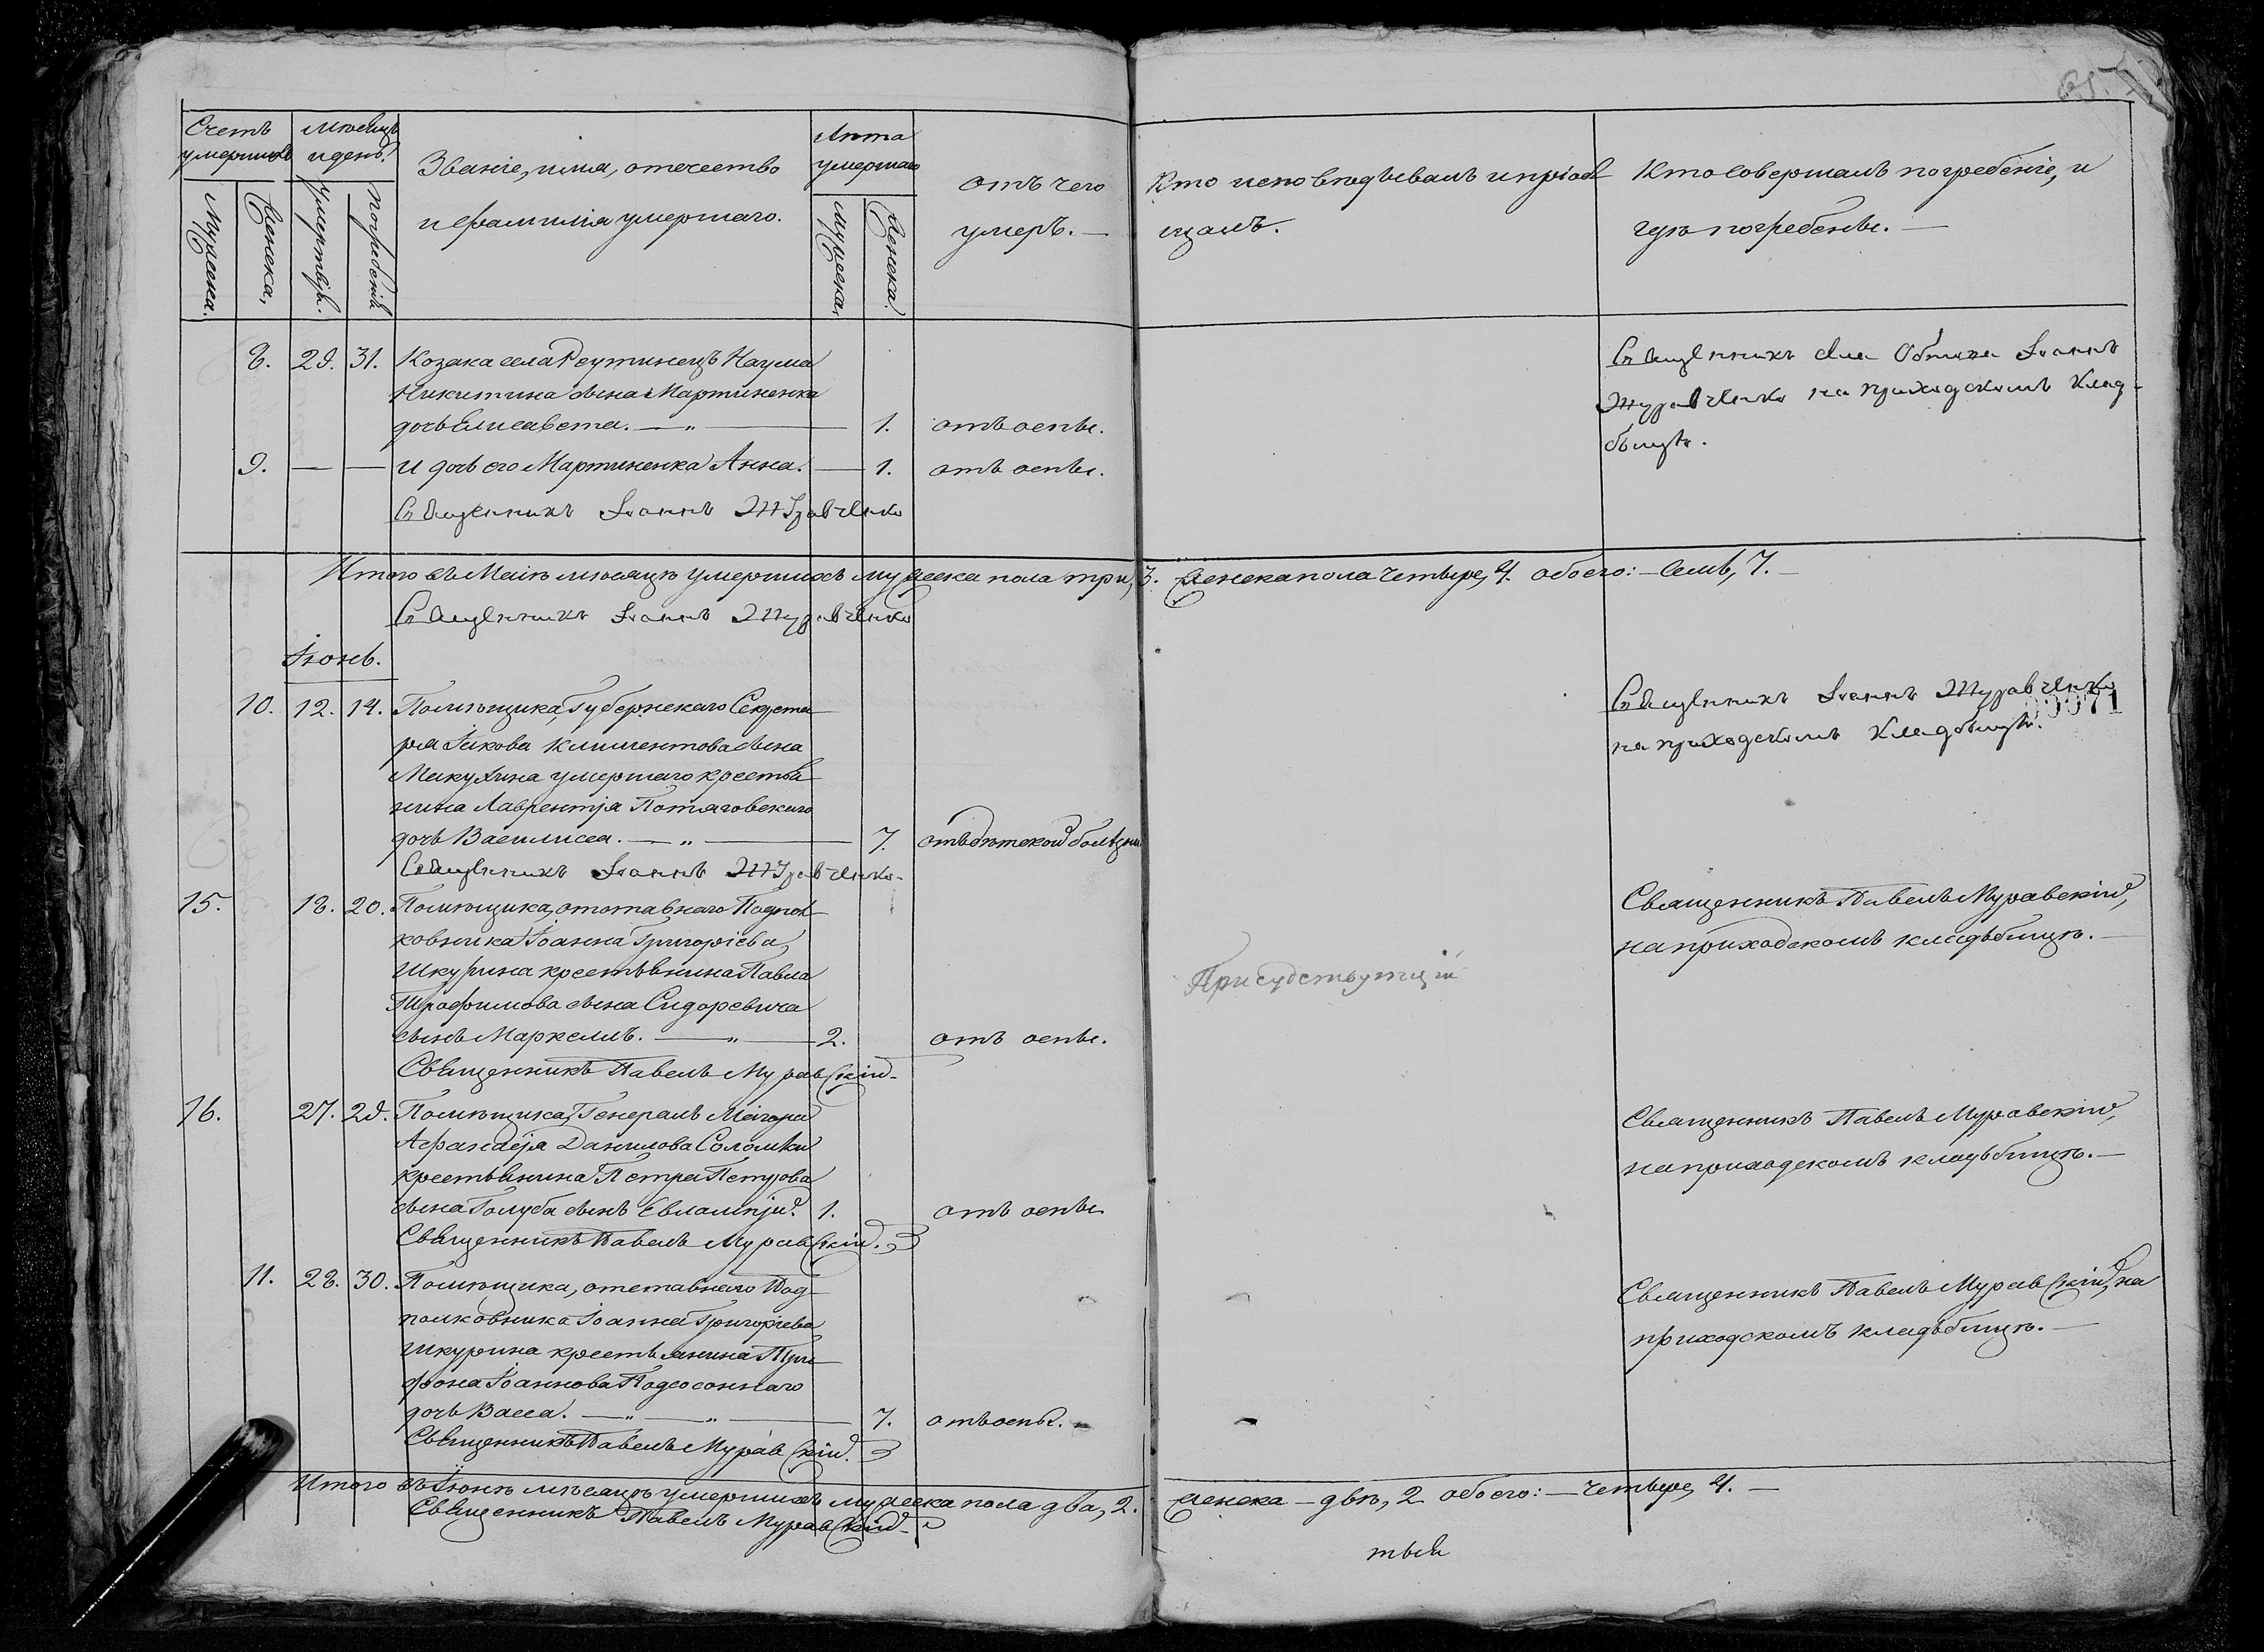 Счетъ умершихъ
Мѣсяцъ и день.
Званіе, имя, отечество
и фамилія умершаго.
Лѣта умершаго
отъ чего
умеръ. —
Кто исповѣдывалъ и пріоб
щалъ.
Кто совершалъ погребеніе, и
гдѣ погребены. —
Мужеска.
Женска,
умертвія.
погребенія
Мужеска,
Женска
8. 29. 31. Козака села Реутинецъ Наума
Никитина сына Мартиненка
дочь Елисавета. — „ — 1. отъ оспы.
Священникъ Іоаннъ
Журавченко на приходскомъ клад-
бищѣ.
9. — — и дочь его Мартиненка Анна. — 1. отъ оспы.
Священникъ Іоаннъ Журавченко
Итого въ Маіѣ мѣсяцѣ умершихъ мужеска пола три, 3. женска пола четыре, 4. обоего: — семь, 7. —
Священникъ Іоаннъ Журавченко
Іюнь.
10. 12. 14. Помѣщика, Губернскаго Секрета
ря Іакова Климентова сына
Макухина умершаго крестья
нина Лаврентія Потяговскаго
дочь Василиса. — „ — 7. отъ дѣтской болѣзни
Священникъ Іоаннъ Журавченко
на приходскомъ кладбищѣ.
Священникъ Іоаннъ Журавченко.
15. 18. 20. Помѣщика, отставнаго Подпол
ковника Іоанна Григоріева
Шкурина крестьянина Павла
Трофимова сына Сидоревича
сынъ Маркеллъ. — „ — 2. отъ оспы.
Священникъ Павелъ Муравскій,
на приходскомъ кладьбищѣ. —
Присудствующій
Священникъ Павелъ Муравскій —
16. 27. 29. Помѣщика, Генералъ Маіора
Афанасія Данилова Соломки
крестьянина Петра Петрова
сына Голуба сынъ Евлампій. 1. отъ оспы
Священникъ Павелъ Муравскій,
на приходскомъ кладьбищѣ. —
Священникъ Павелъ Муравскій.
11. 28. 30. Помѣщика, отставнаго Под
полковника Іоанна Григорьева
Шкурина крестьянина Три
фона Іоаннова Подсосоннаго
дочь Васса. — „ — „ — 7. отъ оспы.
Священникъ Павелъ Муравскій, на
приходскомъ кладьбищѣ. —
Священникъ Павелъ Муравскій.
Итого въ Іюнѣ мѣсяцѣ умершихъ мужеска пола два, 2. женска — двѣ, 2 обоего: — четыре, 4. —
Священникъ Павелъ Муравскій —
тый